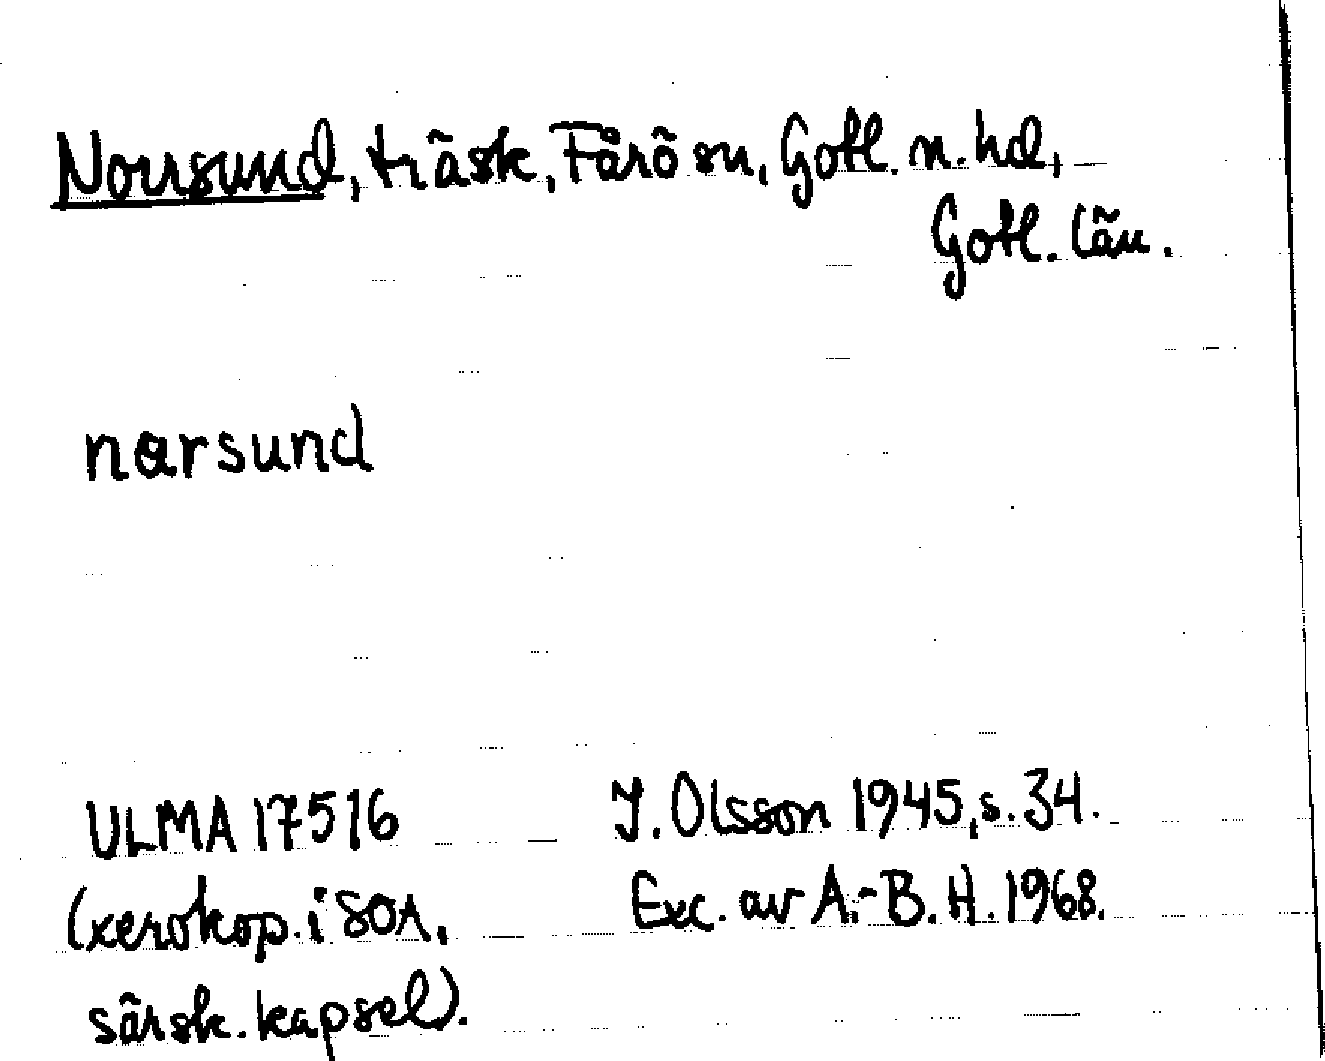 Norrsund, träsk, Fårö sn, Gotl. n. hd,
Gotl. län.
narsund
ULMA 17516
(xerokop. i SOA,
särsk. kapsel).
I. Olsson 1945, s. 34.
Exc. av A.-B. H. 1968.